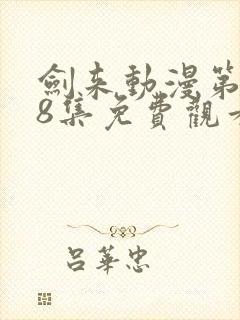 劍来動漫第
8集免費觀
呂華忠